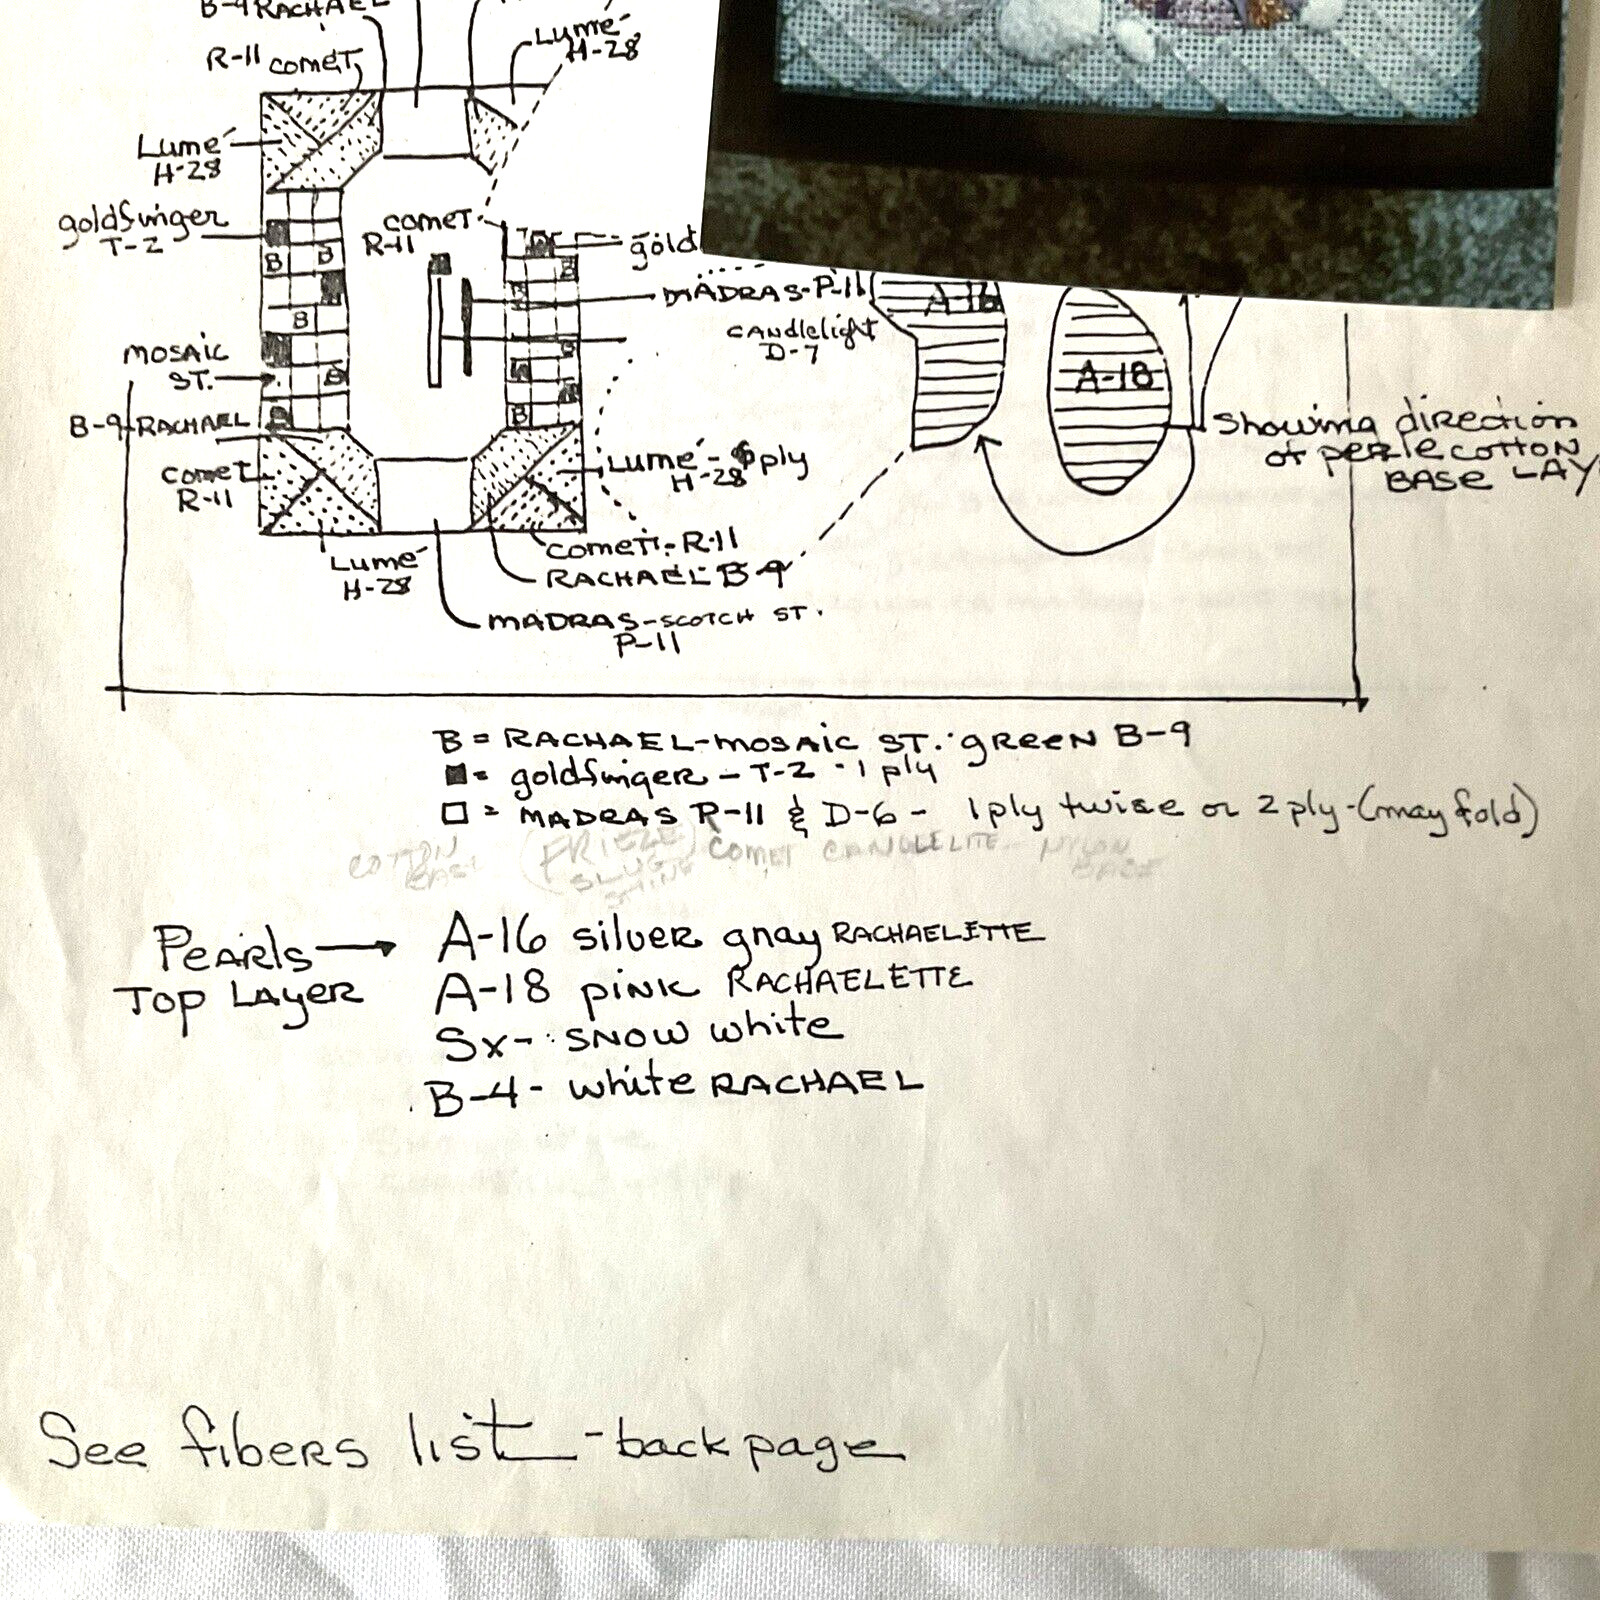 B-9 RACHAEL
R-11 comet
Lumé
H-28
Lumé
H-28
goldfinger
T-2
comet
R-11
gold
B B
B
B
MADRAS-P-11
A-16
CANDLElight
D-7
A-18
mosaic
ST.
B-9-RACHAEL
Showing direction
of perle cotton
BASE LAY
comet
R-11
Lumé - 8 ply
H-28
Lumé
H-28
comet - R-11
RACHAEL B-9
MADRAS-SCOTCH ST.
P-11
B = RACHAEL-mosaic ST. green B-9
■ = goldfinger - T-2 - 1 ply
□ = MADRAS P-11 & D-6 - 1 ply twise or 2 ply-(may fold)
COTTON (FRIEZE) COMET CANDLELITE NYLON
BASE SLUG BASE
SHINE
Pearls → A-16 silver gray RACHAELETTE
TOP LAYER A-18 pink RACHAELETTE
Sx- SNOW white
B-4- white RACHAEL
See fibers list - back page